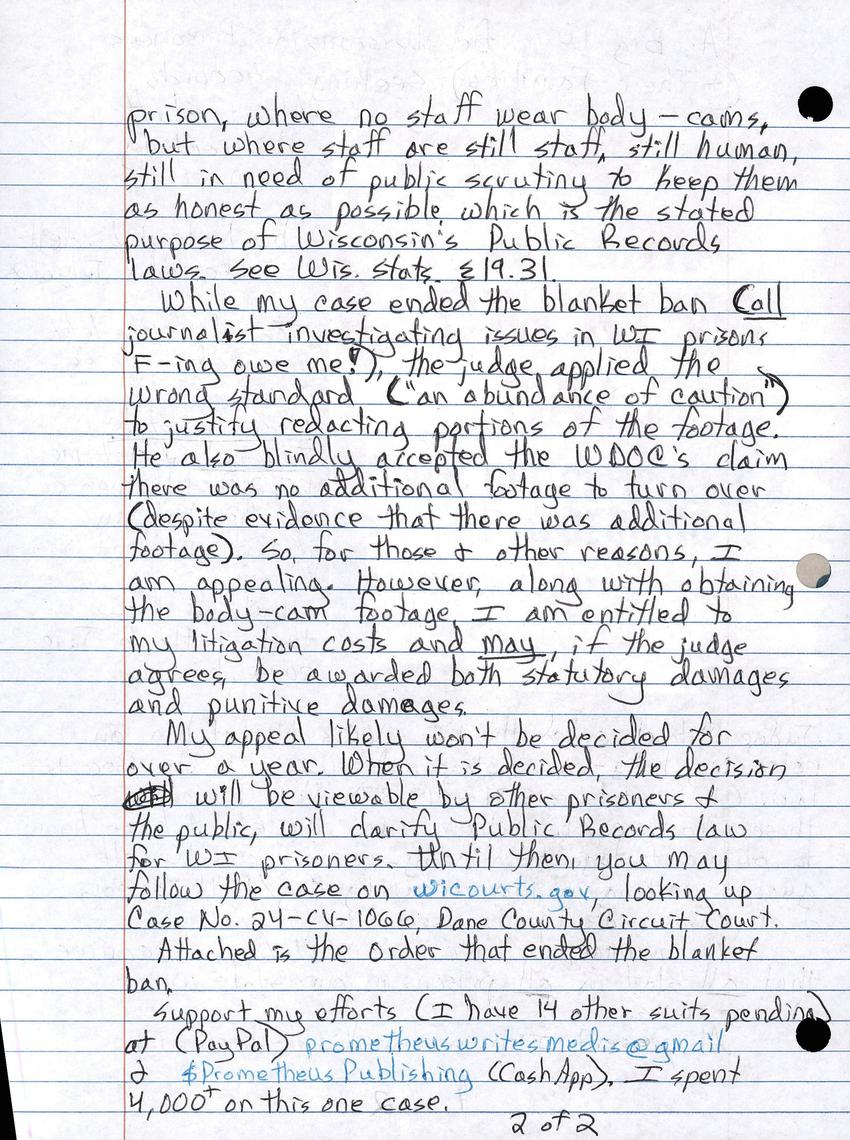 prison, where no staff wear body-cams,
but where staff are still staff, still human,
still in need of public scrutiny to keep them
as honest as possible, which is the stated
purpose of Wisconsin's Public Records
laws. See Wis. Stats. § 19.31.
While my case ended the blanket ban (all
journalist investigating issues in WI prisons
F-ing owe me!), the judge applied the
wrong standard ("an abundance of caution")
to justify redacting portions of the footage.
He also blindly accepted the WDOC's claim
there was no additional footage to turn over
(despite evidence that there was additional
footage). So, for those & other reasons, I
am appealing. However, along with obtaining
the body-cam footage, I am entitled to
my litigation costs and may, if the judge
agrees, be awarded both statutory damages
and punitive damages.
My appeal likely won't be decided for
over a year. When it is decided, the decision
will be viewable by other prisoners &
the public, will clarify Public Records law
for WI prisoners. Until then, you may
follow the case on wicourts.gov, looking up
Case No. 24-CV-1066, Dane County Circuit Court.
Attached is the order that ended the blanket
ban.
Support my efforts (I have 14 other suits pending)
at (PayPal) prometheuswritesmedis@gmail
& $PrometheusPublishing (CashApp). I spent
4,000+ on this one case.
2 of 2